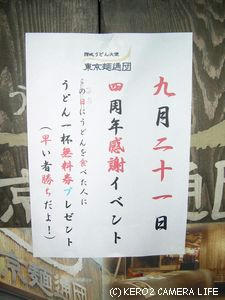 讃岐うどん大使
東京麺通団
九月二十一日
四周年感謝イベント
この日にうどんを食べた人に
うどん一杯無料券プレゼント
(早い者勝ちだよ!)
(C) KERO2 CAMERA LIFE